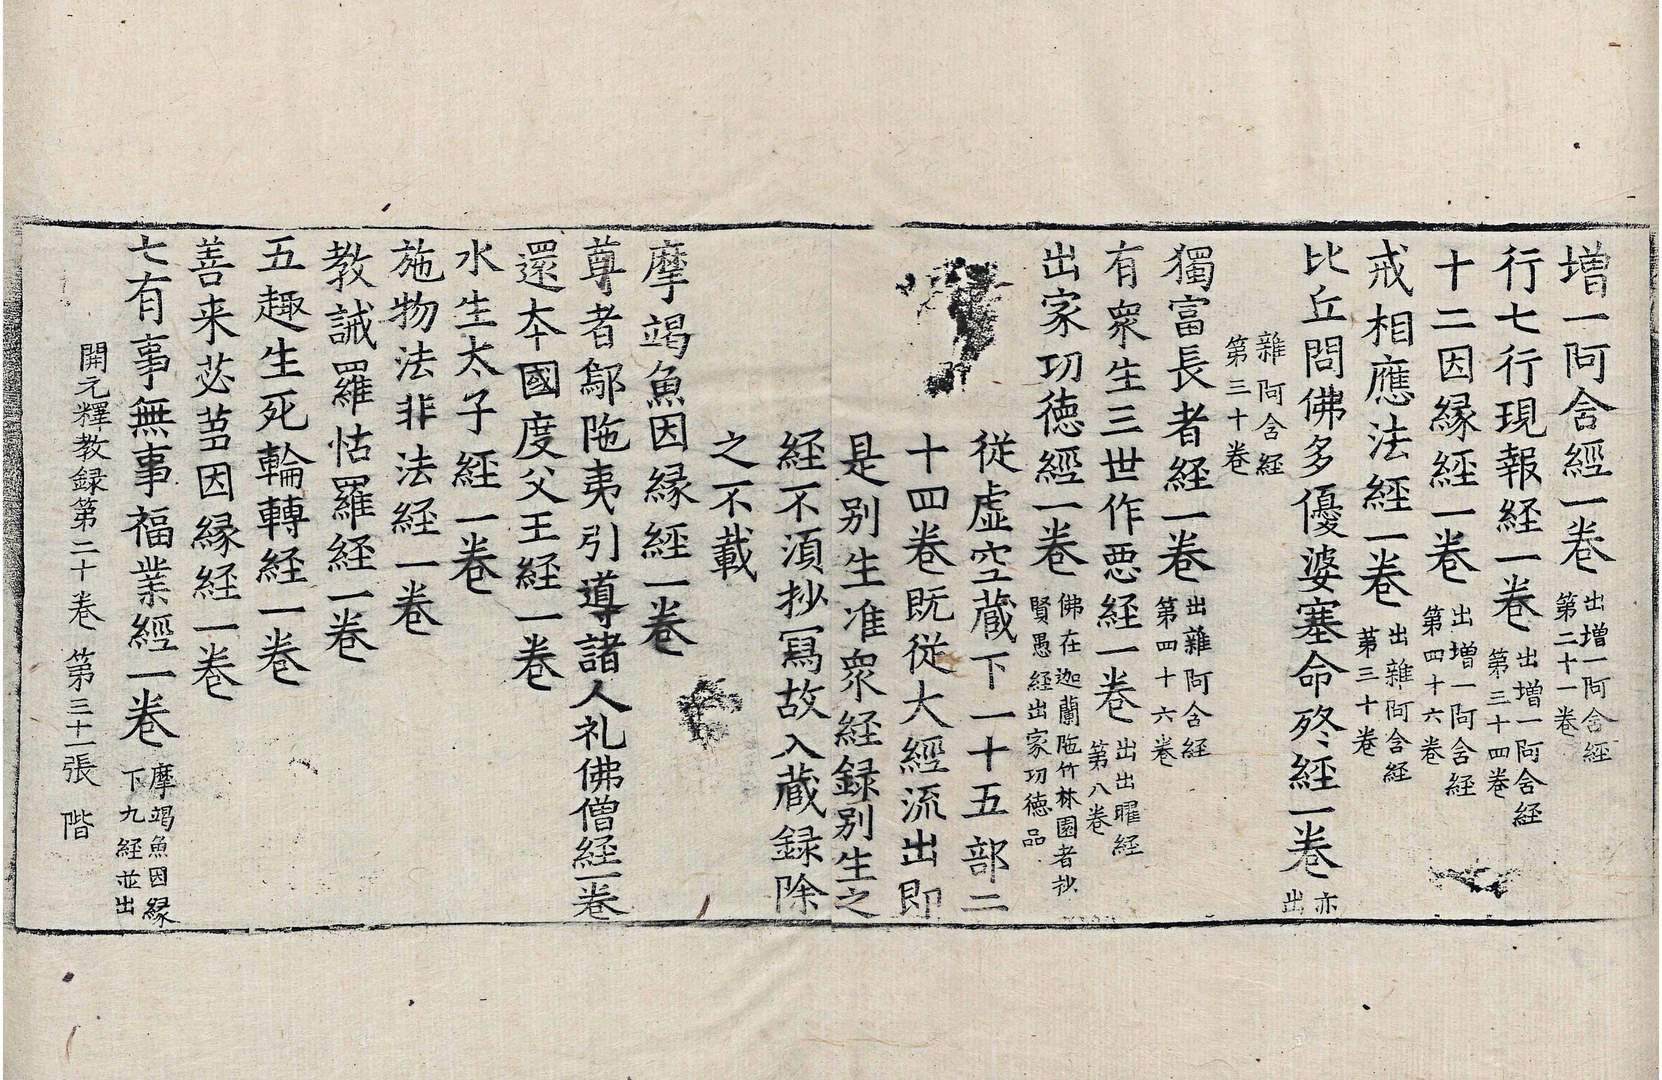 増一阿含經一卷 出増一阿含經第二十一卷
行七行現報経一卷 出増一阿含経第三十四卷
十二因縁經一卷 出増一阿含経第四十六卷
戒相應法經一卷 出雜阿含経第三十卷
比丘問佛多優婆塞命終經一卷 亦出
雜阿含経第三十卷
獨富長者経一卷 出雜阿含経第四十六卷
有衆生三世作悪経一卷 出出曜経第八卷
出家功徳經一卷 佛在迦蘭陁竹林園者抄賢愚経出家功徳品
從虚空蔵下一十五部二
十四卷既従大經流出即
是别生准衆経録别生之
経不湏抄寫故入蔵録除
之不載
摩竭魚因縁經一卷
尊者鄔陁夷引導諸人礼佛僧経一卷
還夲國度父王経一卷
水生太子經一卷
施物法非法経一卷
教誡羅怙羅経一卷
五趣生死輪轉経一卷
善来苾芻因縁経一卷
七有事無事福業經一卷 摩竭魚因縁下九経並出
開元釋教録第二十卷 第三十一張 階